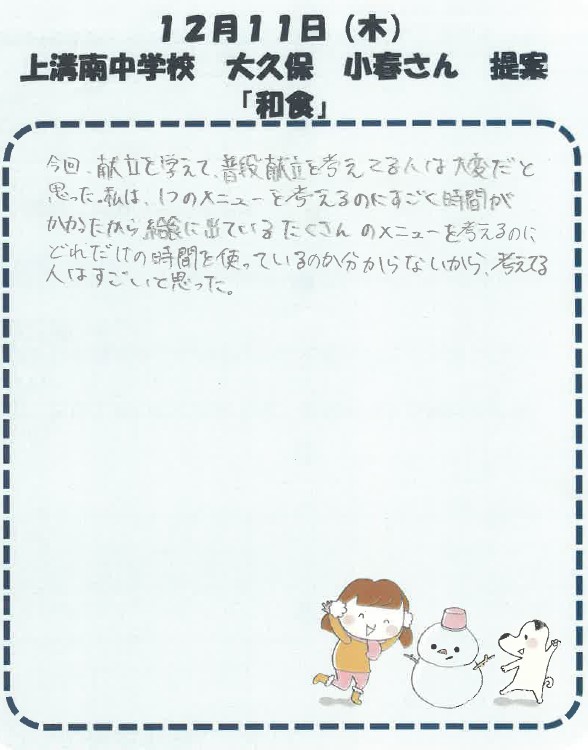 12月11日（木）
上溝南中学校　大久保　小春さん　提案
「和食」
今回、献立を学えて、普段献立を考えてる人は大変だと
思った。私は、1つのメニューを考えるのにすごく時間が
かかったから給食に出ているたくさんのメニューを考えるのに
どれだけの時間を使っているのか分からないから、考えてる
人はすごいと思った。